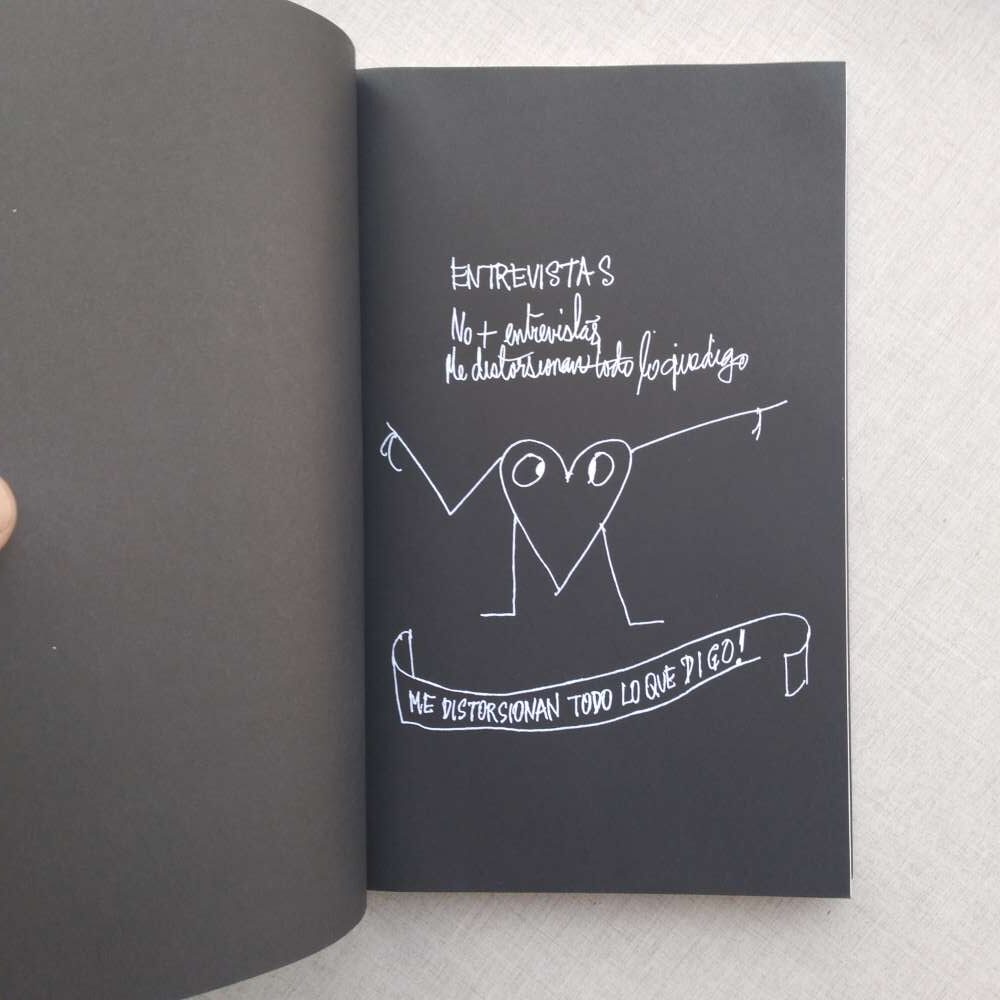 ENTREVISTAS
No + entrevistas
Me distorsionan todo lo que digo
ME DISTORSIONAN TODO LO QUE DIGO!